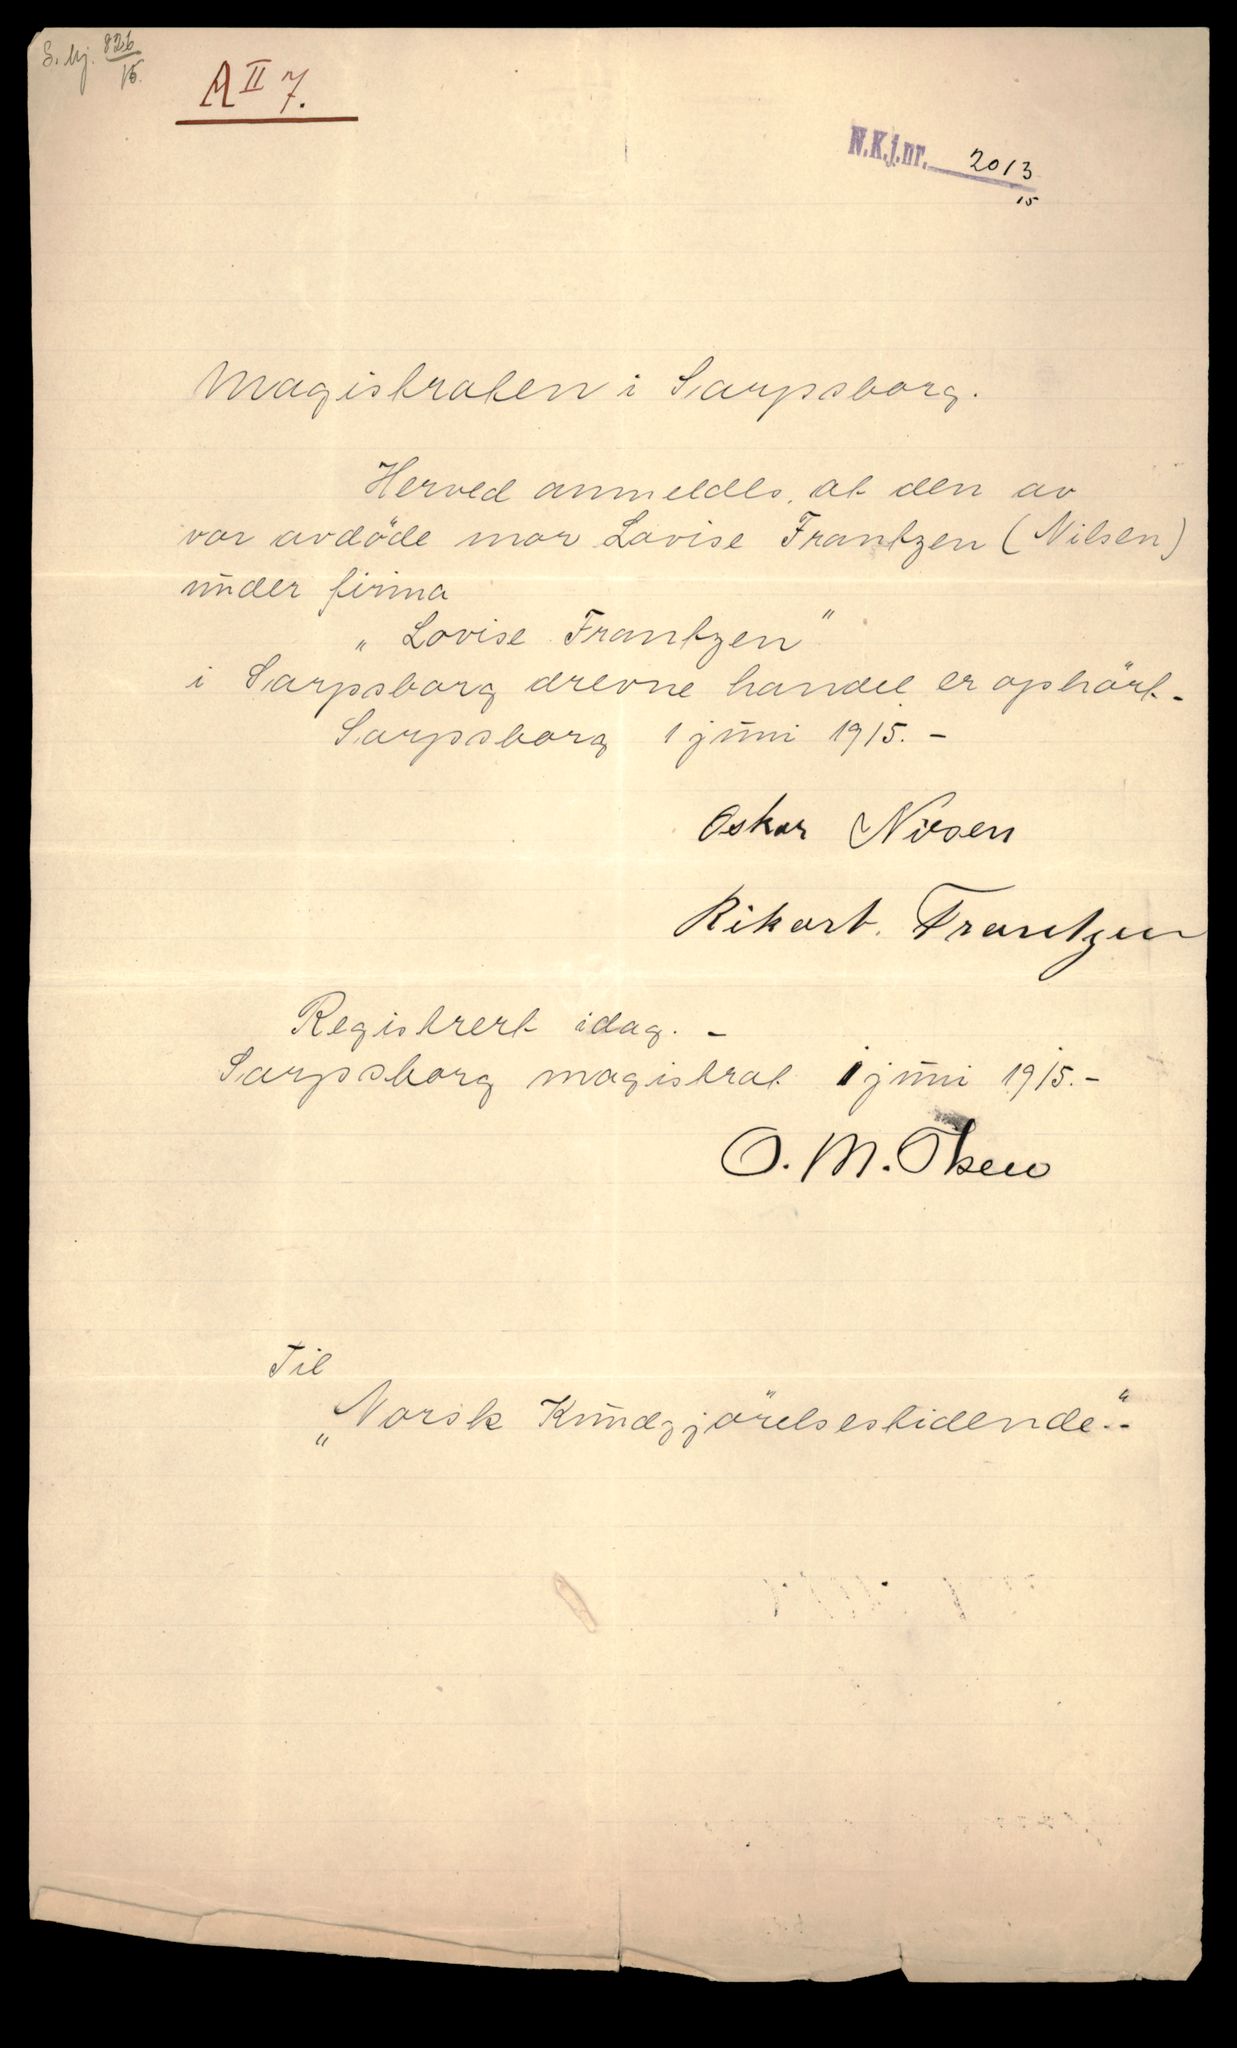 S. kj. 826
15.
A II 7.
N.K.j.nr. 2013
15
Magistraten i Sarpsborg.
Herved anmeldes, at den av
vor avdöde mor Lovise Frantzen (Nilsen)
under firma
„Lovise Frantzen"
i Sarpsborg drevne handel er ophört.-
Sarpsborg 1 juni 1915.-
Oskar Nilsen
Rikart. Frantzen
Registrert idag. -
Sarpsborg magistrat 1 juni 1915.-
O. M.
Til
„Norsk Kundgjörelsestidende".-